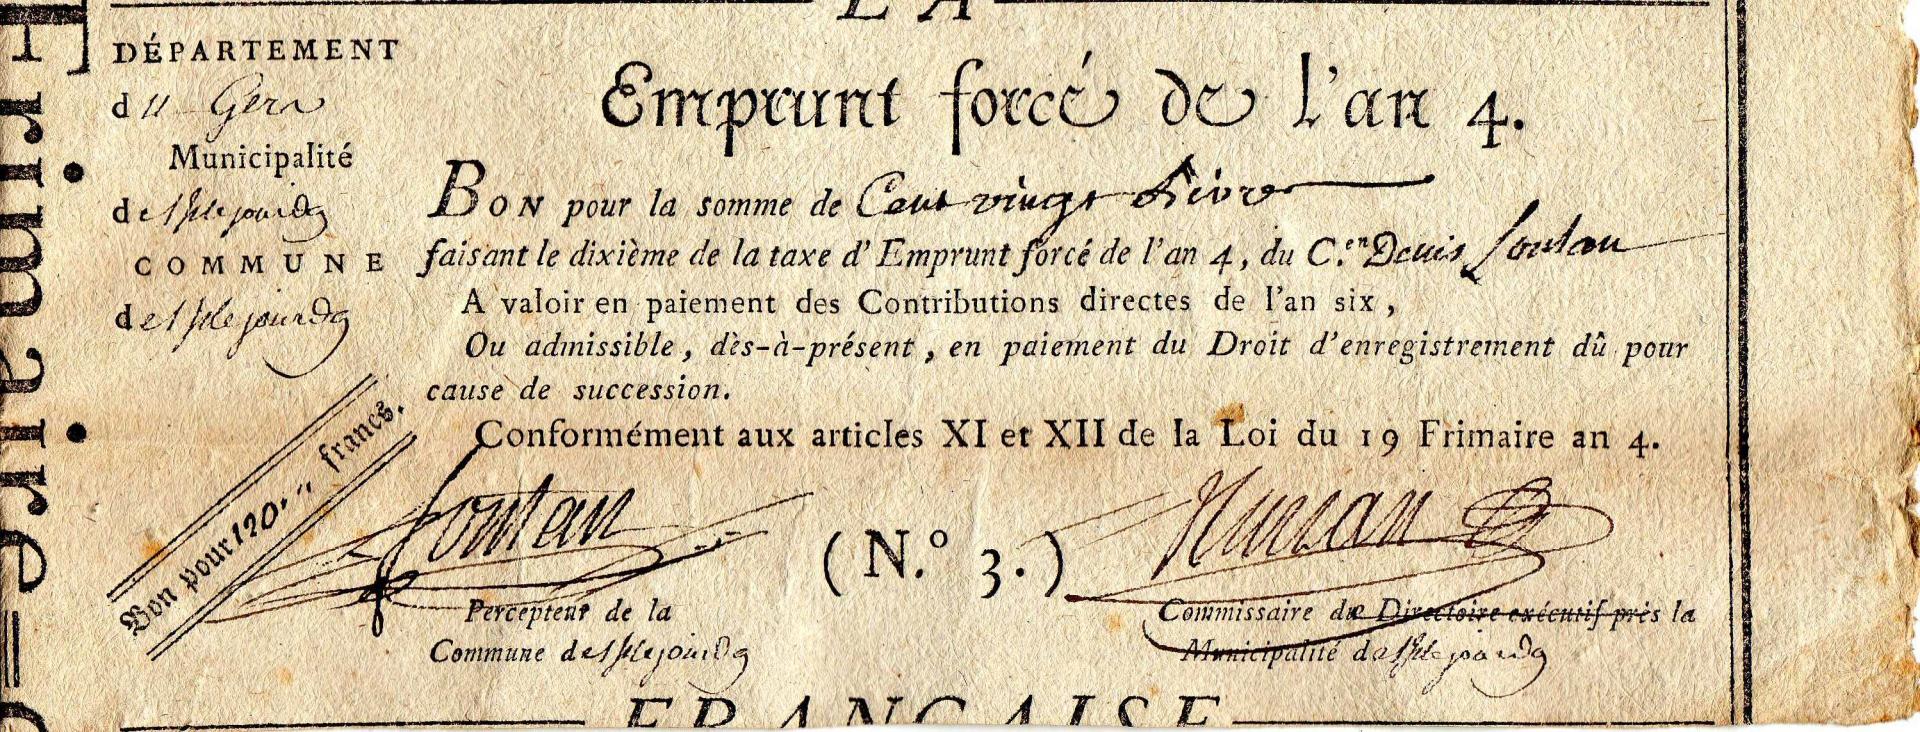 LA
DÉPARTEMENT
du Gers
Municipalité
COMMUNE
Emprunt forcé de l'an 4.
BON pour la somme de Cent vingt Livres
faisant le dixième de la taxe d'Emprunt forcé de l'an 4, du C.en Denis
A valoir en paiement des Contributions directes de l'an six,
Ou admissible, dès-à-présent, en paiement du Droit d'enregistrement dû pour
cause de succession.
Conformément aux articles XI et XII de la Loi du 19 Frimaire an 4.
Bon pour 120 francs.
(N.º 3.)
Percepteur de la
Commune de
Commissaire du Directoire exécutif près la
Municipalité
FRANÇAISE